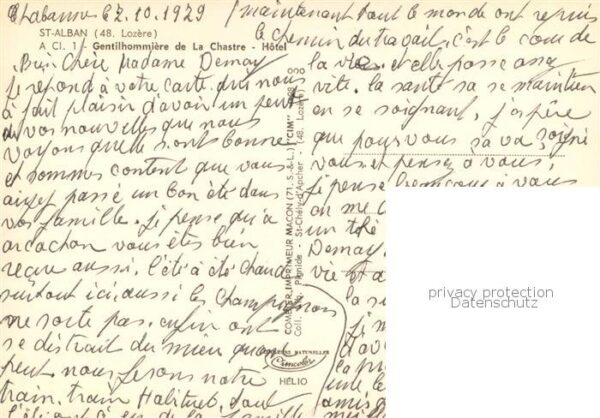 Chabannes le 2.10.1979
ST-ALBAN (48. Lozère)
A Cl. 1 Gentilhommière de La Chastre - Hôtel
Bien Chère Madame Demay
Je répond à votre carte qui nous
à fait plaisir d'avoir un peu
de vos nouvelles que nous
voyons qu'elle sont bonne
et sommes content que vous
ayez passé un bon été dans
vos famille. je pense qu'à
arcachon vous êtes bien
reçue aussi. l'été à été chaud
surtout ici, aussi les champignons
ne sorte pas. enfin ont
se distrait du mieux quand
peut nous fesons notre
train, train Habituel, tout
de la famille
maintenant tout le monde ont repris
le chemin du travail, c'est le cour de
la vie et elle passe assez
vite. la santé sa se maintien
en se soignant, j'espère
que pour vous sa va, soigné
vous et pensez à vous,
je pense beaucoup à vous
on me
un
Demay
vie et a
la s
je m
d'av
la p
une
amis
COMBIER IMPRIMEUR MACON (71. S.-&-L.) "CIM"
Coll. St-Chély-d'Apcher (48. Lozère)
COULEURS NATURELLES
Cimcolor
HELIO
privacy protection
Datenschutz